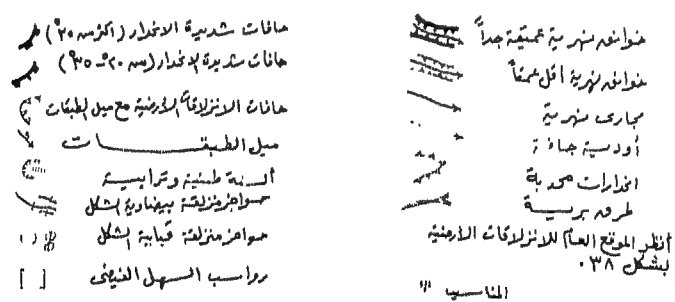 خوانق نهرية عميقة جداً
خوانق نهرية أقل عمقاً
مجارى نهرية
أودية جافة
انحدارات محدبة
طرق برية
أنظر الموقع العام للانزلاقات الأرضية
بشكل ٣٨ .
المناسيب
حافات شديدة الانحدار (أكثر من ٣٥°)
حافات شديدة الانحدار (من ٢٠ - ٣٥°)
حافات الانزلاقات الأرضية مع ميل الطبقات
ميل الطبقات
ألسنة طينية وترابية
حواجز منزلقة بيضاوية الشكل
حواجز منزلقة قبابية الشكل
رواسب السهل الفيضى